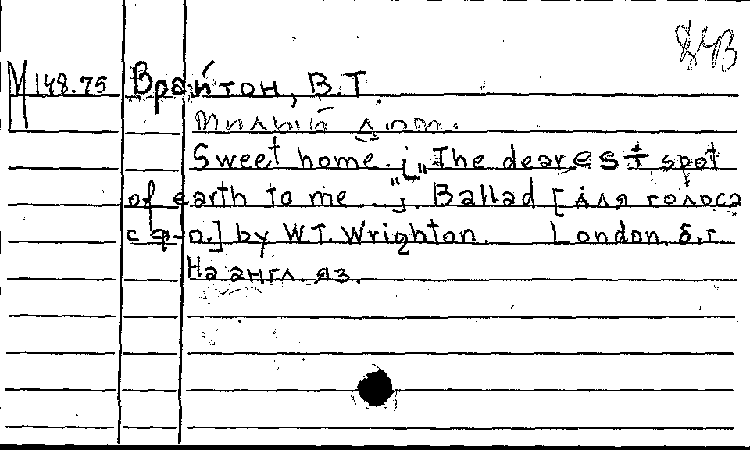 М 148.75 Врайтон, В.Т.
Милый дом.
Sweet home. [„The dearest spot
of earth to me..."]. Ballad [для голоса
с ф-п.] by W.T. Wrighton. London, б.г.
На англ. яз.